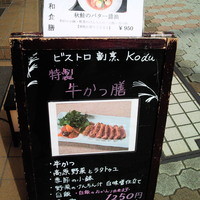 和
介
膳
秋鮭のバター醤油
¥950
ビストロ割烹 Kodu
特製
牛かつ膳
・牛かつ
・高原野菜とラタトゥユ
・季節の小鉢
・野菜のけんちん汁 白味噌仕立て
・白飯
1250円